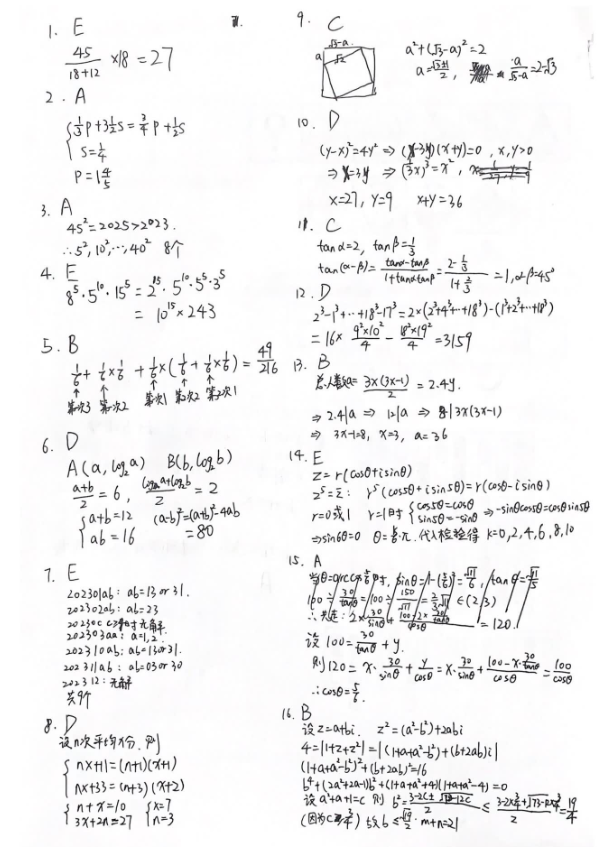 1. E
45/(18+12) ×18 = 27
2. A
{ 1/3 P + 3 1/2 S = 3/4 P + 1/2 S
S = 1/4
P = 1 4/5
3. A
45² = 2025 > 2023.
∴ 5², 10², ⋯, 40² 8个
4. E
8⁵·5¹⁰·15⁵ = 2¹⁵·5¹⁰·5⁵·3⁵
= 10¹⁵×243
5. B
1/6 + 1/6×1/6 + 1/6×(1/6+1/6×1/6) = 49/216
↑ ↑ ↑ ↑ ↑
第1次3 第1次2 第1次1 第2次2 第2次1
6. D
A(a, log₂a) B(b, log₂b)
(a+b)/2 = 6, (log₂a+log₂b)/2 = 2
{ a+b=12 (a-b)²=(a+b)²-4ab
ab=16 =80
7. E
202301ab: ab=13 or 31.
202302ab: ab=23
202303aa: a=1,2.
202310ab: ab=13or31.
202311ab: ab=03 or 30
202312: 无解
共9个
8. D
设n次平均x分, 则
{ nx+11=(n+1)(x+1)
nx+33=(n+3)(x+2)
{ n+x=10 { x=7
3x+2n=27 n=3
7.
9. C
√3-a
a √2
a²+(√3-a)²=2
a=(√3+1)/2, a/(√3-a)=2-√3
10. D
(y-x)²=4y² ⇒ (x-3y)(x+y)=0, x,y>0
⇒ x=3y ⇒ (1/3 x)³=x²,
x=27, y=9 x+y=36
11. C
tanα=2, tanβ=1/3
tan(α-β)=(tanα-tanβ)/(1+tanαtanβ)=(2-1/3)/(1+2/3)=1, α-β=45°
12. D
2³-1³+⋯+18³-17³=2×(2³+4³+⋯+18³)-(1³+2³+⋯+18³)
=16×(9²×10²)/4-(18²×19²)/4=3159
13. B
总人数a=3x(3x-1)/2=2.4y.
⇒ 2.4|a ⇒ 12|a ⇒ 8|3x(3x-1)
⇒ 3x-1=8, x=3, a=36
14. E
z=r(cosθ+isinθ)
z⁵=z̄: r⁵(cos5θ+isin5θ)=r(cosθ-isinθ)
r=0或1 r=1时 { cos5θ=cosθ sin5θ=-sinθ ⇒ -sinθcos5θ=cosθsin5θ
⇒ sin6θ=0 θ=k/6·π. 代入检验得 k=0,2,4,6,8,10
15. A
设 100=30/tanθ+y.
则120=x·30/sinθ+y/cosθ=x·30/sinθ+(100-x·30/tanθ)/cosθ=100/cosθ
∴cosθ=5/6.
16. B
设z=a+bi. z²=(a²-b²)+2abi
4=|1+z+z²|=|(1+a+a²-b²)+(b+2ab)i|
(1+a+a²-b²)²+(b+2ab)²=16
b⁴+(2a²+2a-1)b²+(1+a+a²+4)(1+a+a²-4)=0
设a²+a+1=c 则
m+n=21